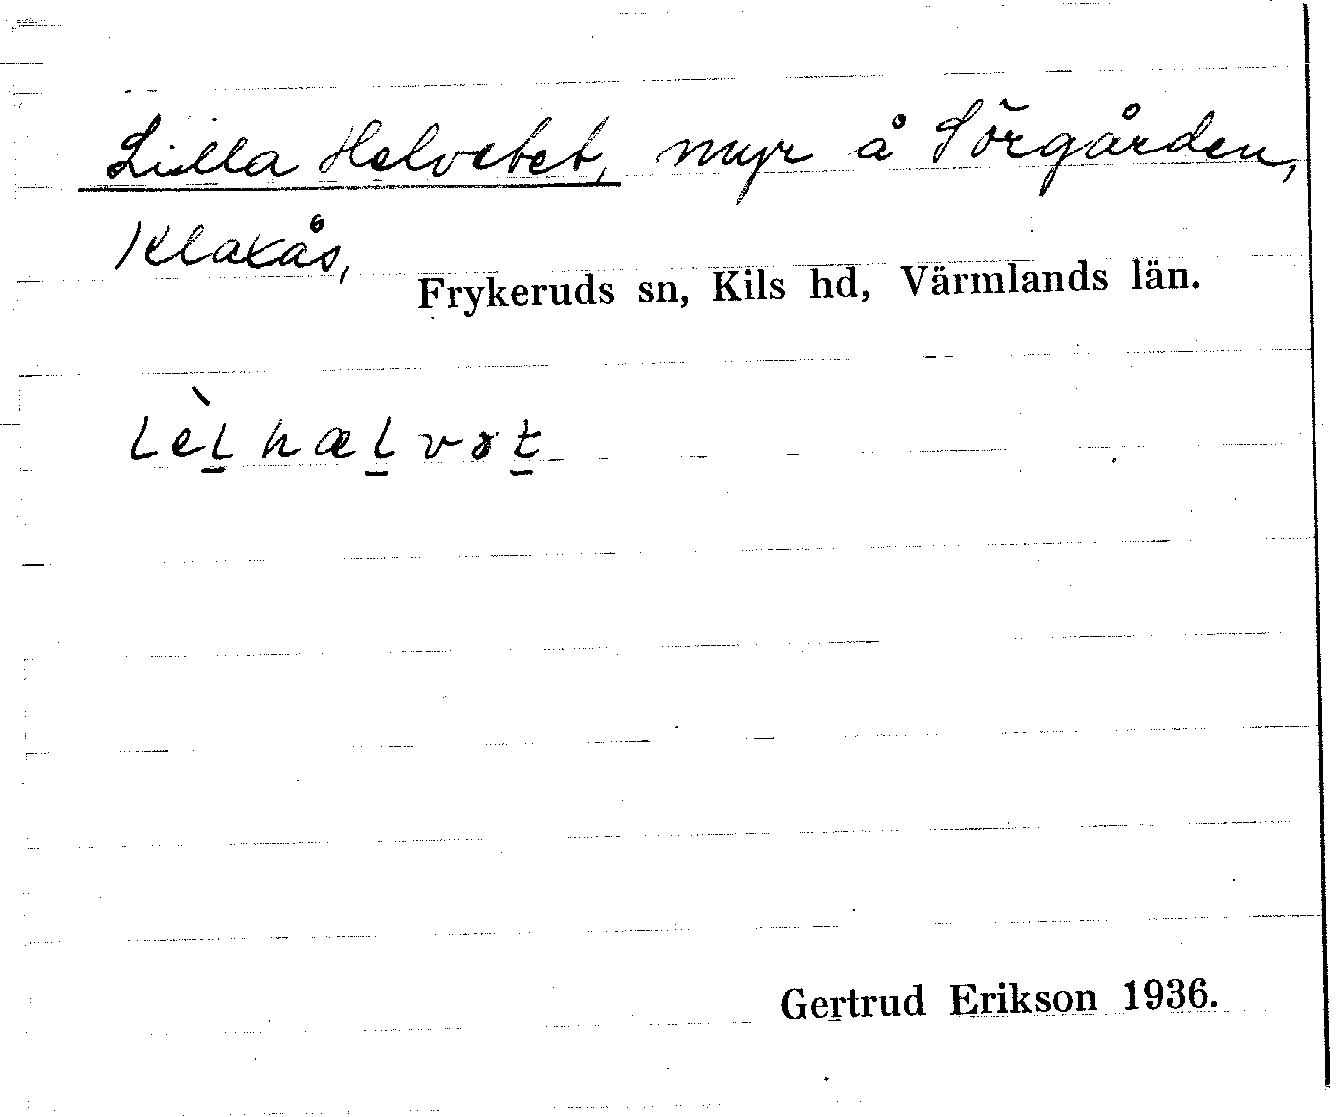 Lilla Helvetet, myr å Sörgården,
Klaxås,
Frykeruds sn, Kils hd, Värmlands län.
lèl hælvət
Gertrud Erikson 1936.